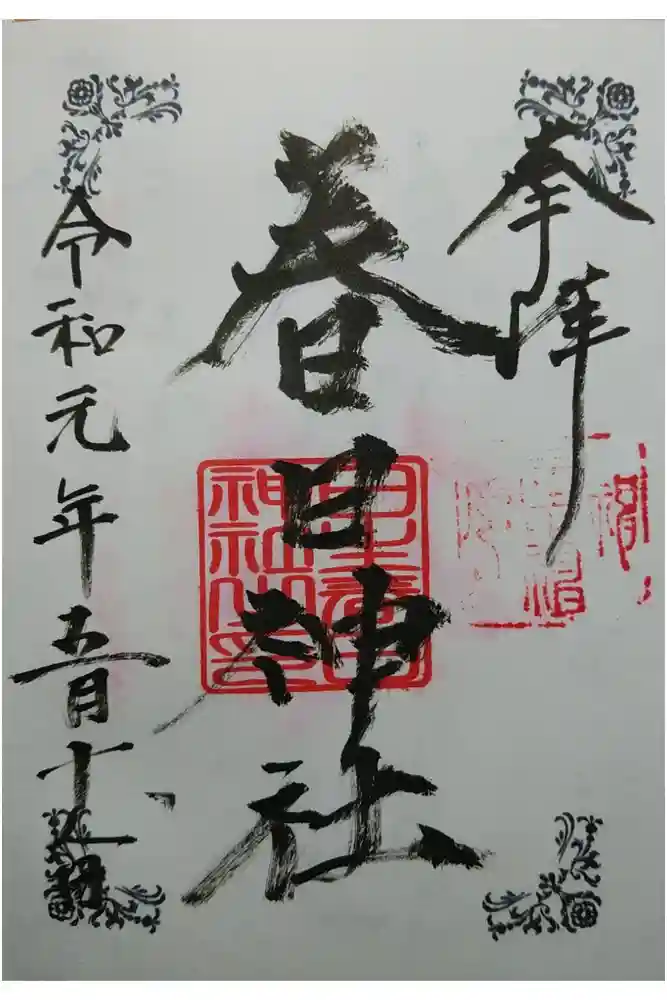 奉拝
春日神社
令和元年五月十